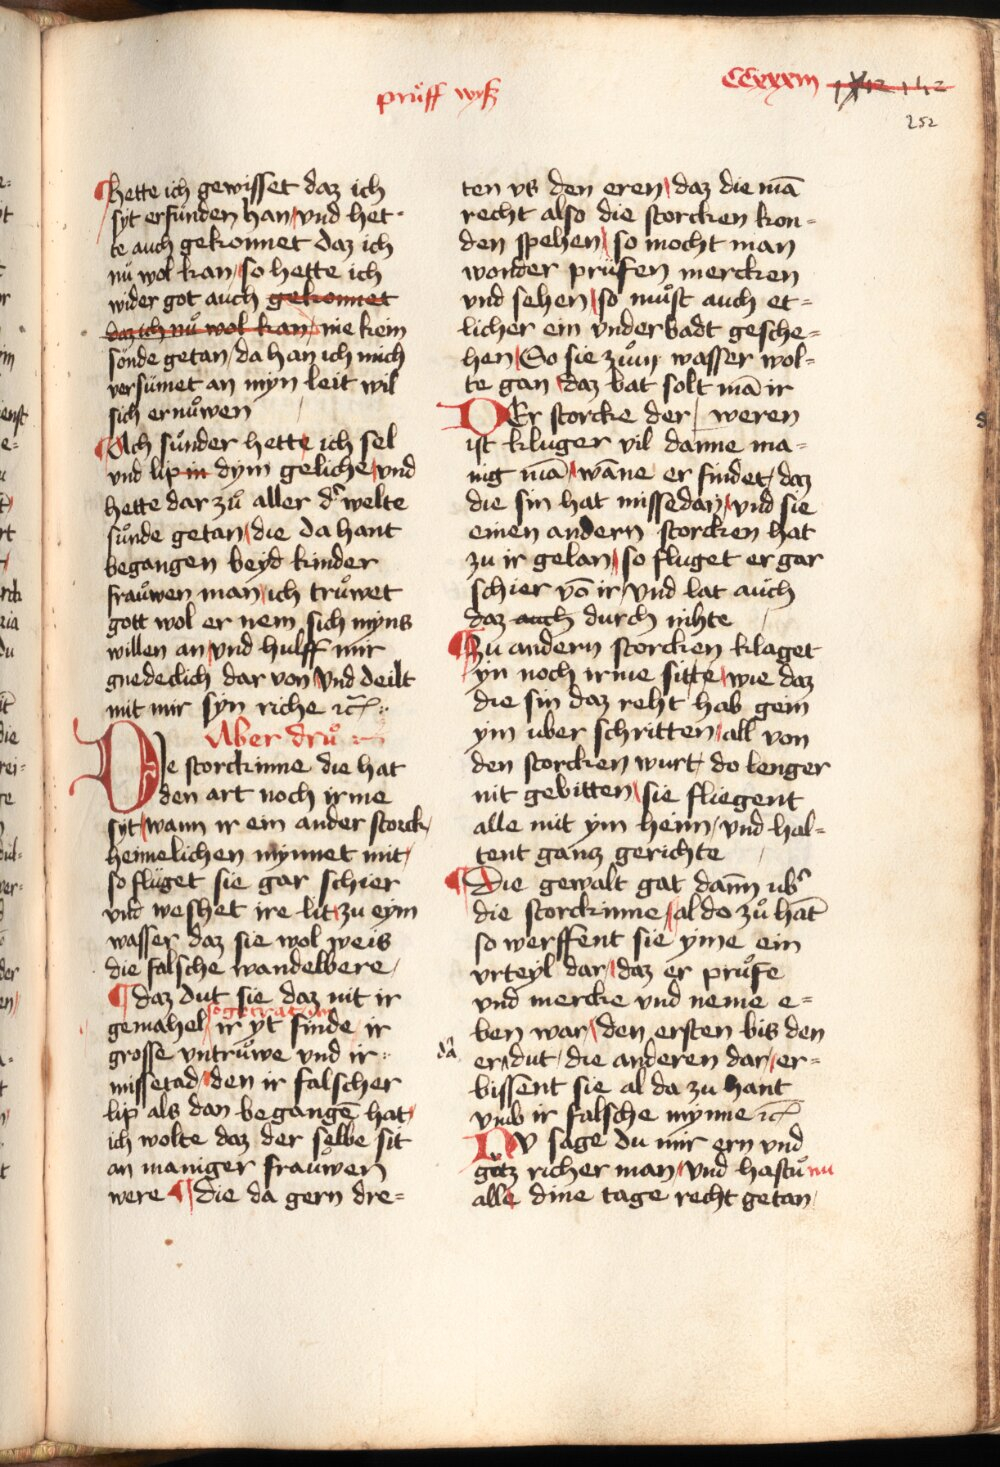 průff wiß
CCxxxiii
252
hette ich gewisset daz ich
syt erfunden han vnd het-
te auch gekonnet daz ich
nů wol kan / so hette ich
wider got auch gekonnet
daz ich nů wol kan / nie kein
sonde getan / da han ich mich
versümet an myn leit wil
sich ernůwen
Ach sůnder hette ich sel
vnd lip in dym geliche vnd
hette dar zů aller dˀ welte
sůnde getan / die da hant
begangen beyd kinder
fraůwen man / ich trůwet
gott wol er nem sich myns
willen an / vnd hulff mir
gnedeclich dar von vnd deilt
mit mir syn riche ⁊c̃
Aber drů
DIe storckinne die hat
den art noch irme
syt / wann ir ein ander storck /
heimelichen mynnet mit /
so flüget sie gar schier
vnd weshet ire lit zu eym
wasser daz sie wol weis
die falsche wandelbere /
daz dut sie daz nit ir
gemahel / ir yt finde ir
grosse vntrůwe vnd ir
missetad / den ir falscher
lip als dan begangē hat /
ich wolte daz der selbe sit
an maniger fraůwen
were ¶ die da gern dre=
ten vs den eren / daz die mā
recht also die storcken kon=
den spehen / so mocht man
wonder prüfen mercken
vnd sehen / so můst auch et=
licher ein vnderbadt gesche=
hen / So sie zům wasser wol=
te gan / daz bat solt mā ir
DEr storcke der / weren
ist kluger vil danne ma=
nig mā / wāne er findet / daz
die sin hat missedan / vnd sie
einen andern storcken hat
zu ir gelan / so fluget er gar
schier vō ir / vnd lat auch
daz auch durch nihte
Zu andern storcken klaget
yn noch irme sitte / wie daz
die sin daz reht hab gein
ym uber schritten / all von
den storcken wurt / do lenger
nit gebitten / sie fliegent
alle mit ym heim / vnd hal=
tent gantz gerichte
Die gewalt gat dann̄ ubˀ
die storckinne / al do zů hāt
so werffent sie yme ein
vrteyl dar / daz er průfe
vnd mercke vnd neme e=
ben war / den ersten bis den
dā
er dut / die anderen dar / er=
bissent sie al da zu hant
vmb ir falsche mynne ⁊c̃
NV sage du mir ern vnd
gůtz richer man / vnd hastů nu
alle dine tage recht getan